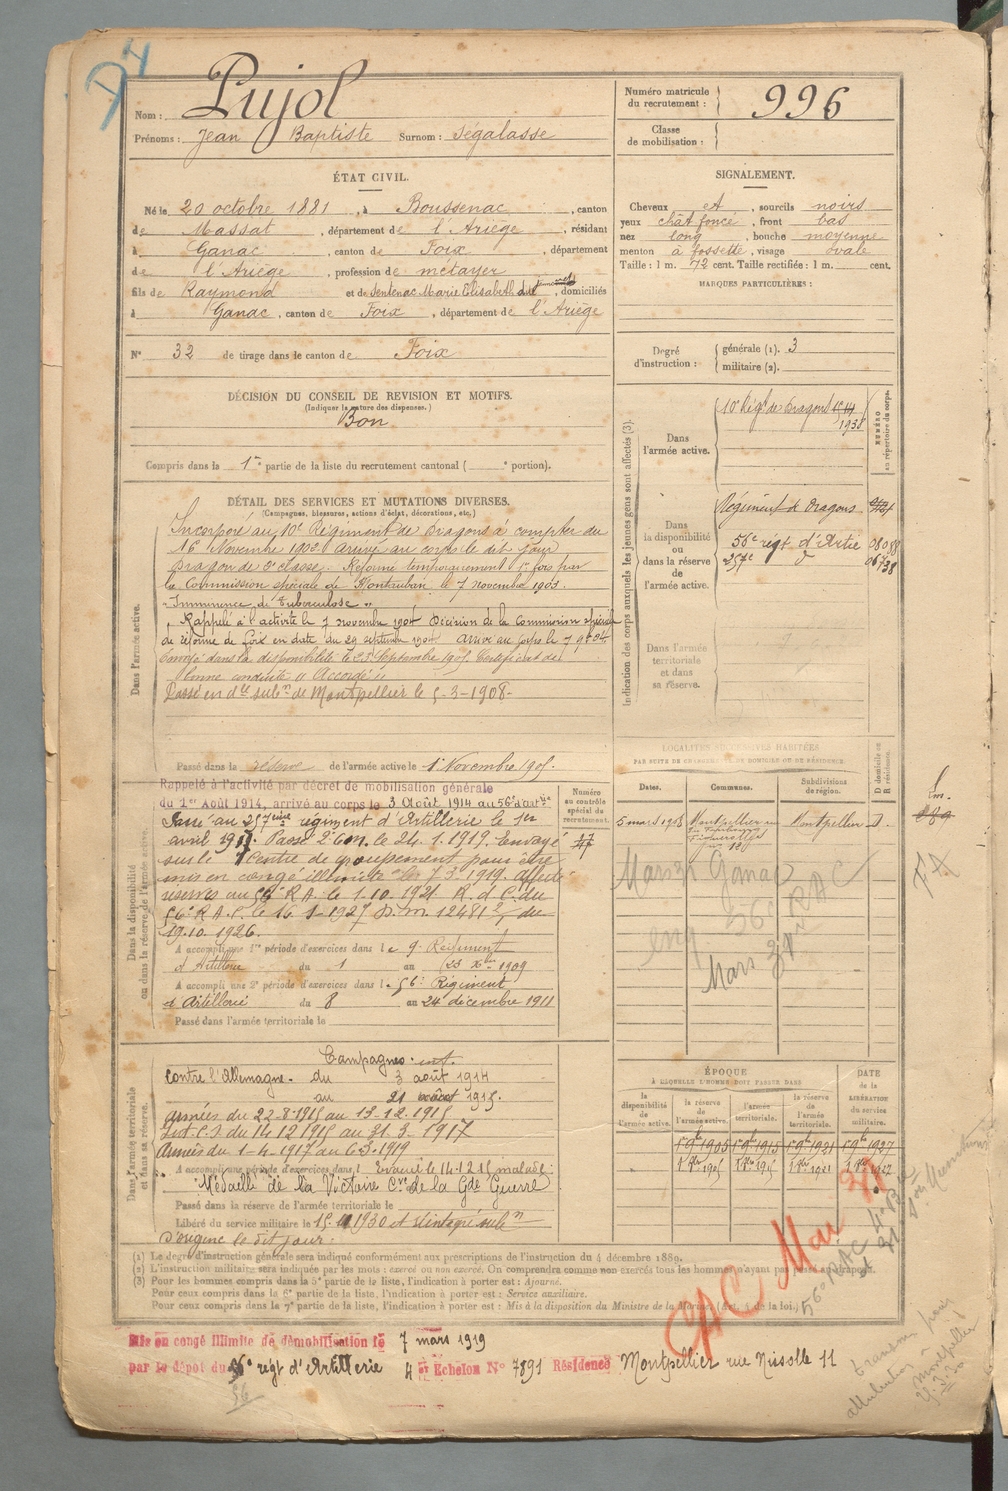 D4
Nom : Pujol
Prénoms : Jean Baptiste Surnom : Ségalasse
Numéro matricule du recrutement : 996
Classe de mobilisation :
ÉTAT CIVIL.
Né le 20 octobre 1881, à Boussenac, canton
de Massat, département de l'Ariège, résidant
à Ganac, canton de Foix, département
de l'Ariège, profession de métayer
fils de Raymond et de Sentenac Marie Elisabeth, domiciliés
à Ganac, canton de Foix, département de l'Ariège
N° 32 de tirage dans le canton de Foix
SIGNALEMENT.
Cheveux et, sourcils noirs
yeux chât foncé, front bas
nez long, bouche moyenne
menton à fossette, visage ovale
Taille : 1 m. 72 cent. Taille rectifiée : 1 m. cent.
MARQUES PARTICULIÈRES :
Degré d'instruction : générale (1). 3
militaire (2).
DÉCISION DU CONSEIL DE REVISION ET MOTIFS.
(Indiquer la nature des dispenses.)
Bon
Compris dans la 1re partie de la liste du recrutement cantonal ( portion).
DÉTAIL DES SERVICES ET MUTATIONS DIVERSES.
(Campagnes, blessures, actions d'éclat, décorations, etc.)
Dans l'armée active.
Incorporé au 10e Régiment de Dragons à compter du
16 Novembre 1902. Arrivé au corps le dit jour
Dragon de 2e classe. Réformé temporairement 1re fois par
la Commission spéciale de Montauban le 7 novembre 1903.
"Imminence de Tuberculose"
Rappelé à l'activité le 7 novembre 1904 Décision de la Commission spéciale
de réforme de Foix en date du 29 septembre 1904 arrivé au corps le 7 9bre 04.
Envoyé dans la disponibilité le 23 Septembre 1905 Certificat de
bonne conduite "Accordé"
Passé en dle subn de Montpellier le 5-3-1908-
Passé dans la réserve de l'armée active le 1 Novembre 1905.
Indication des corps auxquels les jeunes gens sont affectés (3).
NUMÉRO au répertoire du corps.
Dans l'armée active.
10e Régt de Dragons
1935
Dans la disponibilité ou dans la réserve de l'armée active.
Régiment de Dragons
56e régt d'Artie
257e d°
Dans l'armée territoriale et dans sa réserve.
Dans la disponibilité ou dans la réserve de l'armée active.
Rappelé à l'activité par décret de mobilisation générale
du 1er Août 1914, arrivé au corps le 3 Août 1914 au 56e d'artie
Passé au 257ème régiment d'Artillerie le 1er
avril 1917. Passé 2e Con. le 24.1.1919. Envoyé
sur le 7 Centre de groupement pour être
mis en congé illimité le 7.3.1919. Affecté
réserves au 56e R A. le 1.10.1921 R. d C. du
56e R.A.C. le 16.1.1927 D.M. 12481 du
19.10.1926.
A accompli une 1re période d'exercices dans le 9e Régiment
d'Artillerie du 1 au 23 Xbre 1909
A accompli une 2e période d'exercices dans le 56e Régiment
d'Artillerie du 8 au 24 décembre 1911
Passé dans l'armée territoriale le
Numéro au contrôle spécial du recrutement.
LOCALITÉS SUCCESSIVES HABITÉES
PAR SUITE DE CHANGEMENT DE DOMICILE OU DE RÉSIDENCE
Dates. Communes. Subdivisions de région. D domicile ou R résidence.
5 mars 1908 Montpellier Montpellier D.
Marié Ganac
56e RAC
Mars
FA
Dans l'armée territoriale et dans sa réserve.
Campagnes :
Contre l'Allemagne. du 3 août 1914
au 21 1915.
Armées du 22-8-1915 au 13-12-1915
Int. C.S du 14 12 1915 au 31-3-1917
Armées du 1-4-1917 au 6-3-1919
A accompli une période d'exercices dans l Evacué le 14.12.15 malade.
Médaille de la Victoire Cve de la Gde Guerre
Passé dans la réserve de l'armée territoriale le
Libéré du service militaire le 1930 et réintégré subn
d'origine le dit jour.
ÉPOQUE
À LAQUELLE L'HOMME DOIT PASSER DANS
la disponibilité de l'armée active. la réserve de l'armée active. l'armée territoriale. la réserve de l'armée territoriale.
DATE de la LIBÉRATION du service militaire.
1 9bre 1905 1 9bre 1915 1 9bre 1921 1 9bre 1927
(1) Le degré d'instruction générale sera indiqué conformément aux prescriptions de l'instruction du 4 décembre 1889.
(2) L'instruction militaire sera indiquée par les mots : exercé ou non exercé. On comprendra comme non exercés tous les hommes n'ayant pas passé au drapeau.
(3) Pour les hommes compris dans la 5e partie de la liste, l'indication à porter est : Ajourné.
Pour ceux compris dans la 6e partie de la liste, l'indication à porter est : Service auxiliaire.
Pour ceux compris dans la 7e partie de la liste, l'indication à porter est : Mis à la disposition du Ministre de la Marine. (Art. 4 de la loi.)
56e RAC
Mis en congé illimité de démobilisation le 7 mars 1919
par le dépôt du 56e régt d'Artillerie 4 et Echelon N° 7891 Résidence Montpellier rue Nissolle 11
56